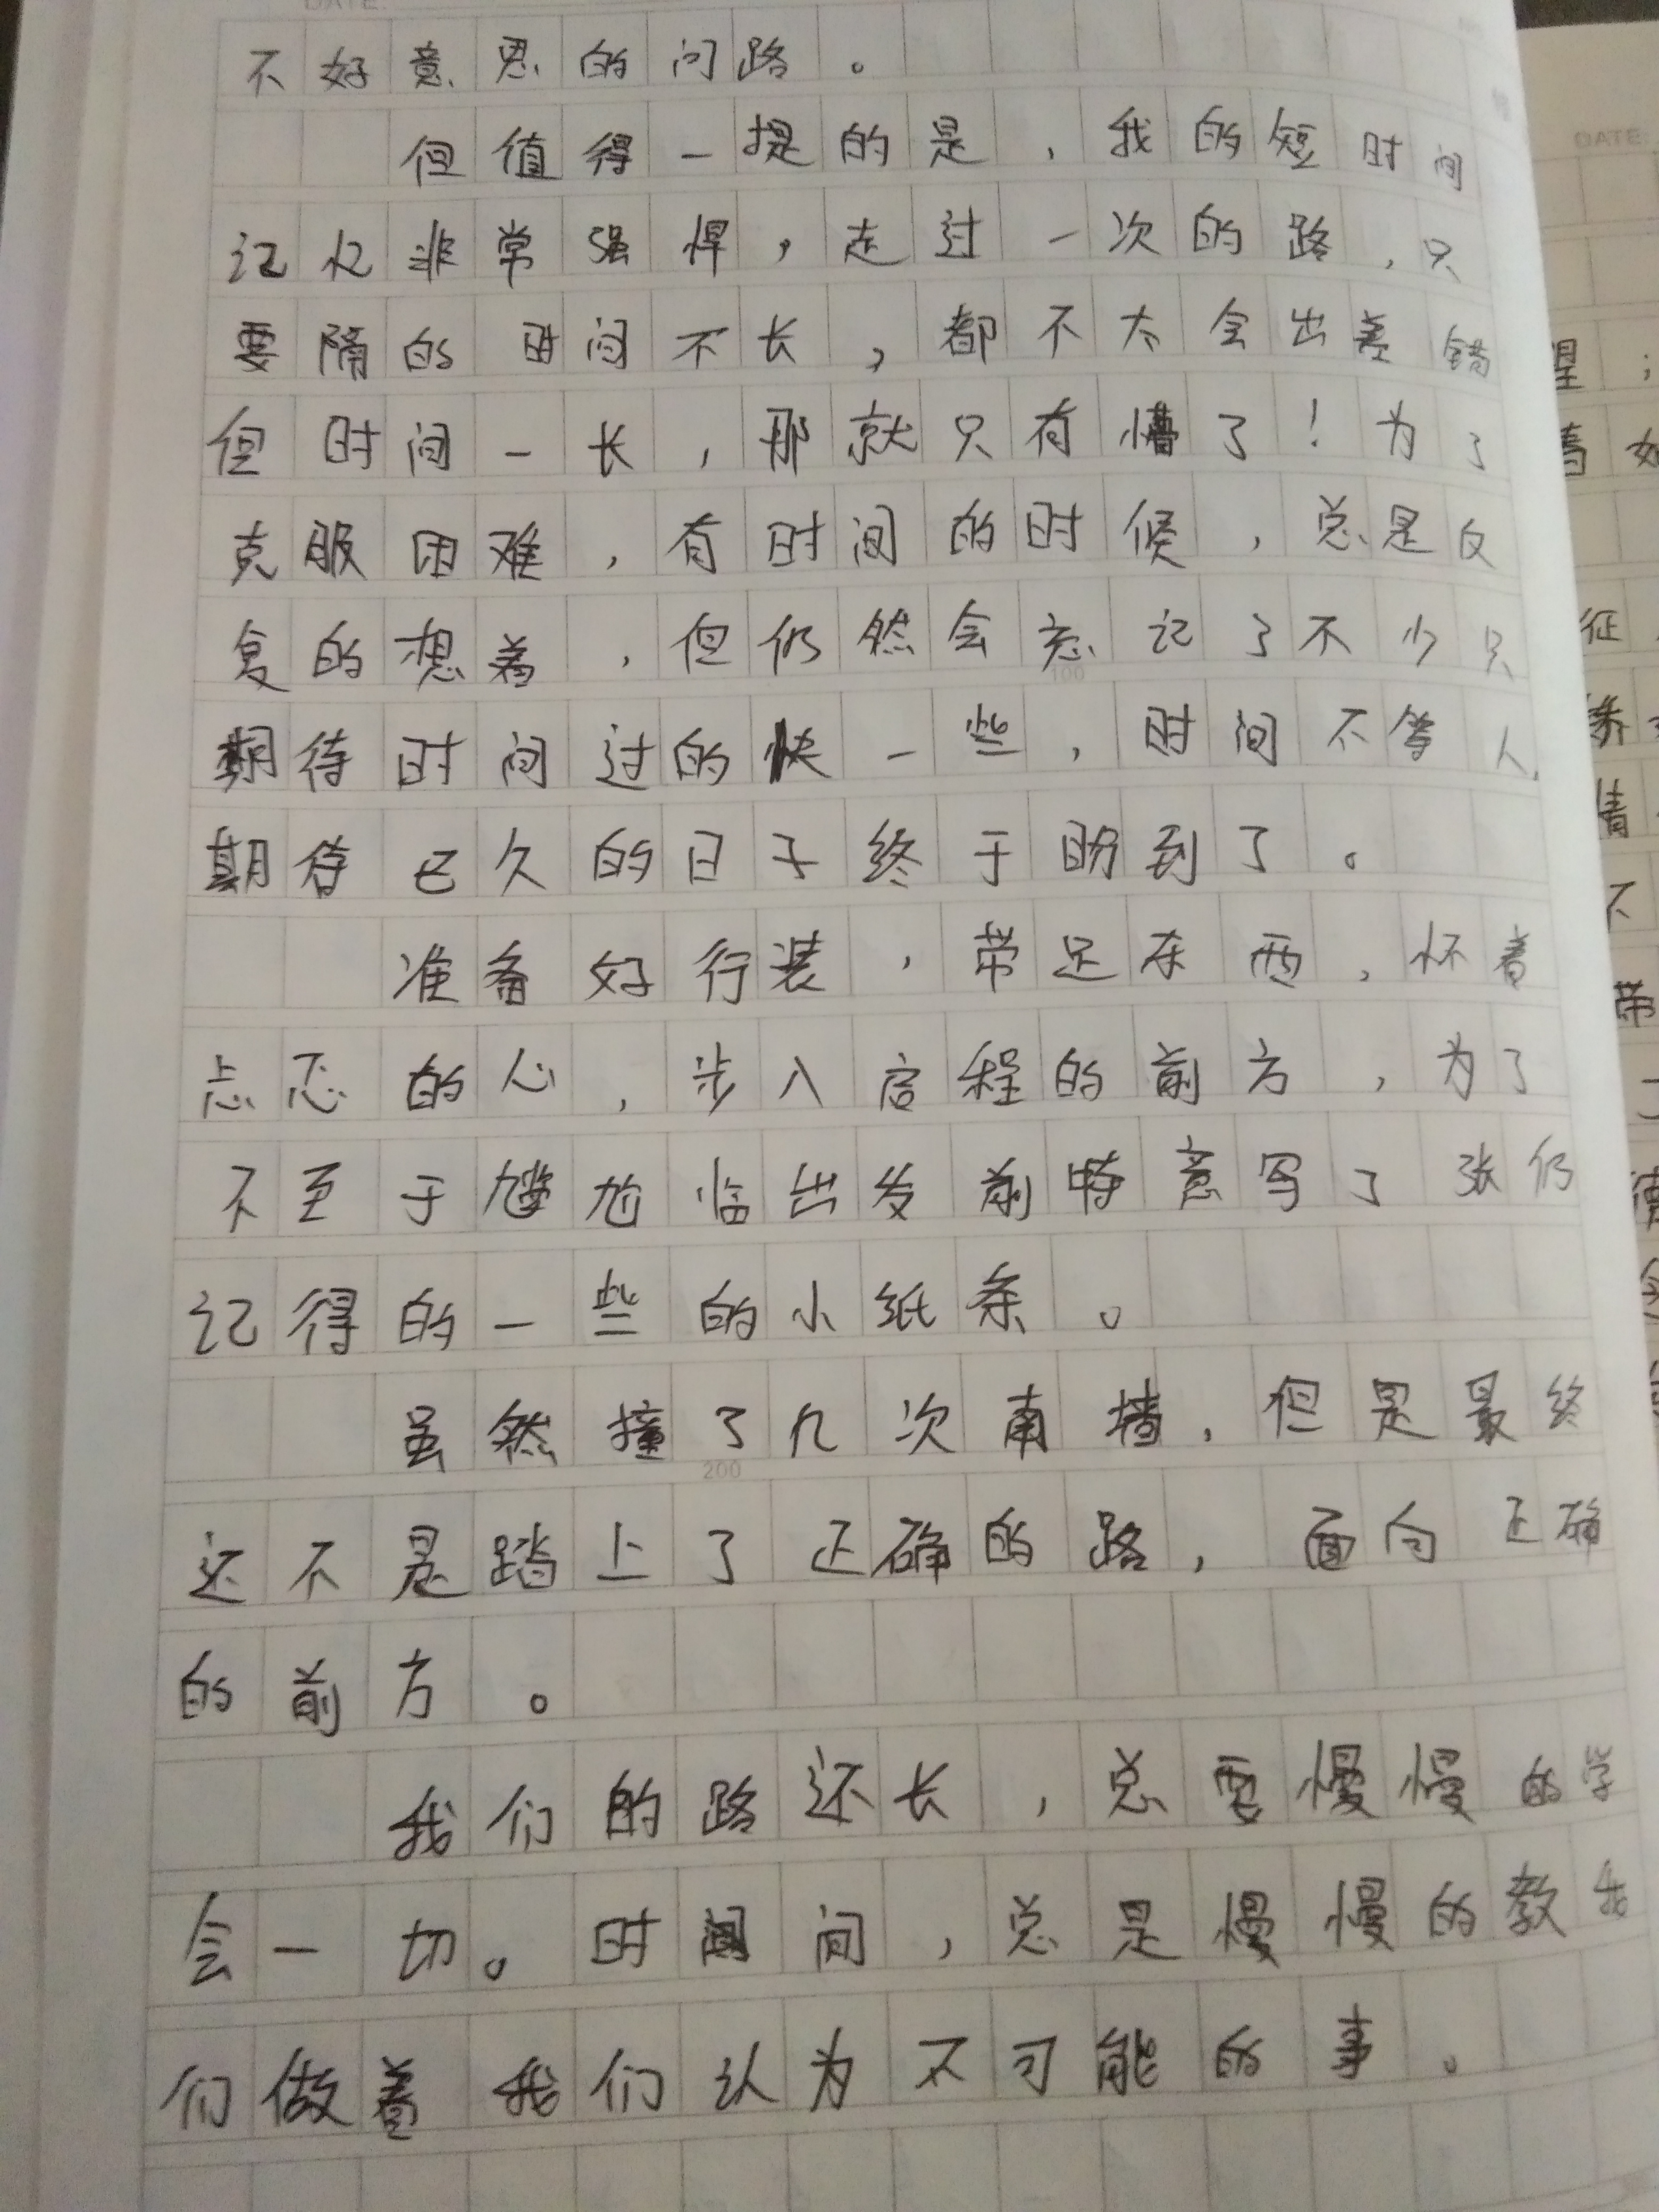 DATE:
不好意思的问路。
但值得一提的是，我的短时间
记忆非常强悍，走过一次的路，只
要隔的时间不长，都不太会出差错
但时间一长，那就只有懵了！为了
克服困难，有时间的时候，总是反
复的想着，但仍然会忘记了不少只
100
期待时间过的快一些，时间不等人，
期待已久的日子终于盼到了。
准备好行装，带足东西，怀着
忐忑的心，步入启程的前方，为了
不至于尴尬临出发前特意写了张仍
记得的一些的小纸条。
虽然撞了几次南墙，但是最终
200
还不是踏上了正确的路，面向正确
的前方。
我们的路还长，总要慢慢的学
会一切。时间，总是慢慢的教我
们做着我们认为不可能的事。
DATE: